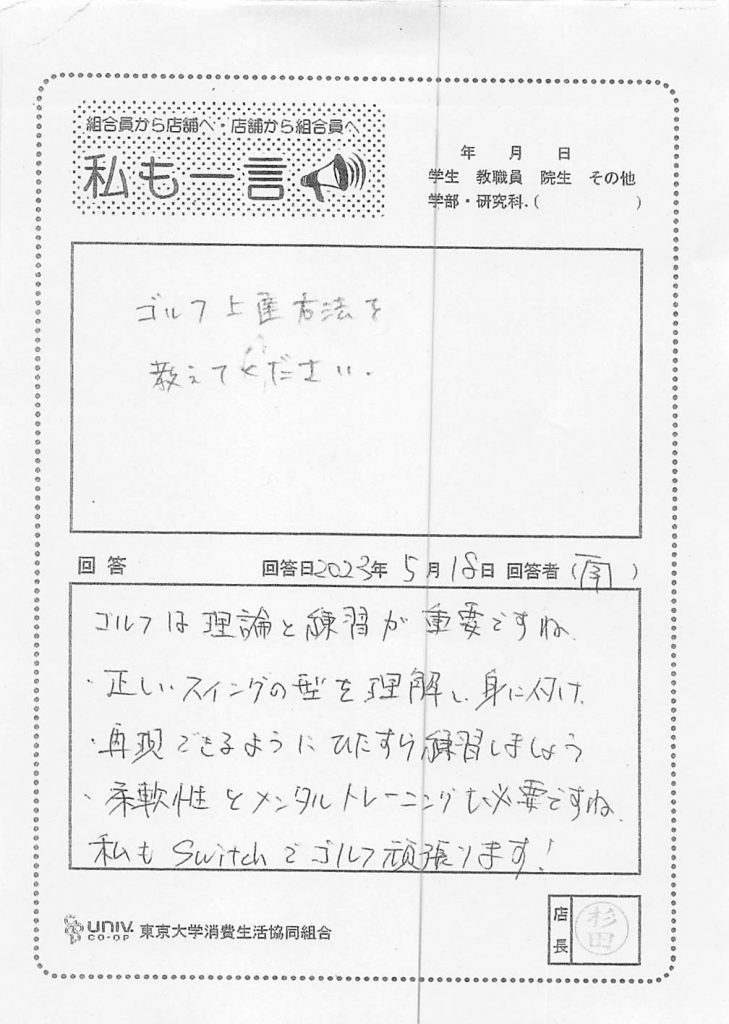 組合員から店舗へ・店舗から組合員へ
私も一言
年 月 日
学生 教職員 院生 その他
学部・研究科.( )
ゴルフ上達方法を
教えてください.
回答 回答日2023年5月18日 回答者( )
ゴルフは理論と練習が重要ですね.
・正しいスイングの型を理解し、身に付け.
・再現できるようにひたすら練習しましょう
・柔軟性とメンタルトレーニングも必要ですね.
私もSwitchでゴルフ頑張ります!
UNIV. CO-OP 東京大学消費生活協同組合
店長 杉田